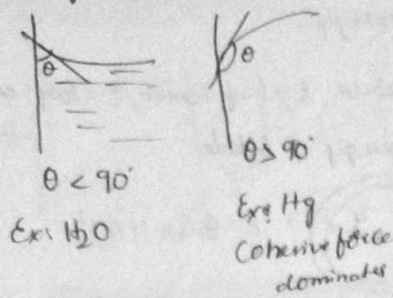 θ
θ
θ < 90°
θ > 90°
Ex: H2O
Ex: Hg
Cohesive force
dominates